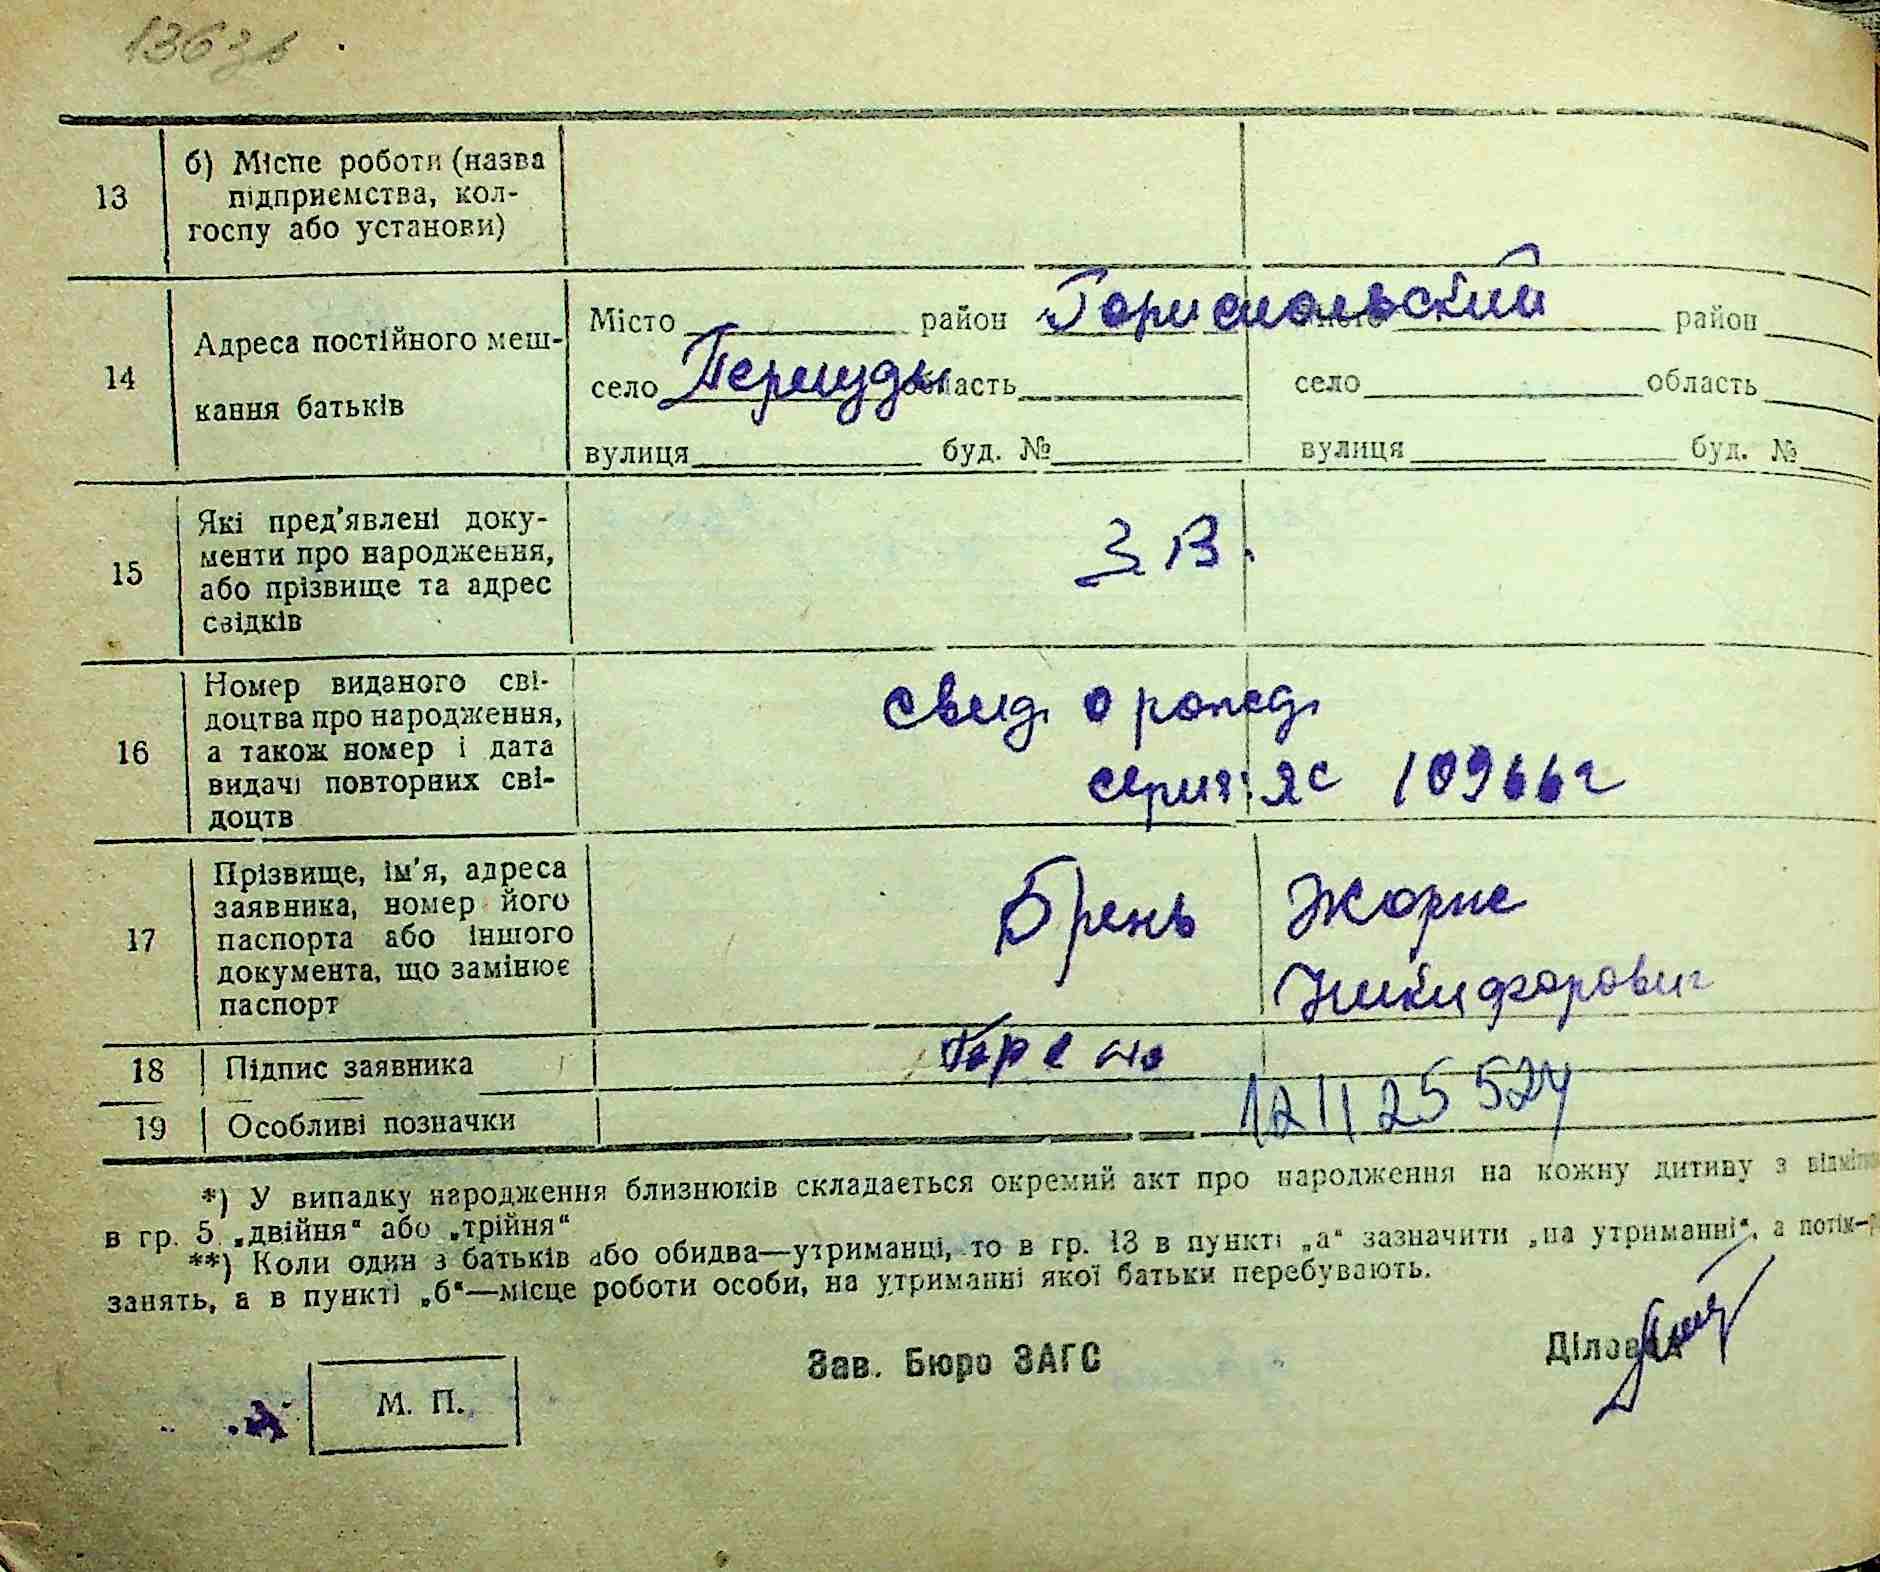 136 зв
13
б) Місце роботи (назва
підприємства, кол-
госпу або установи)
14
Адреса постійного меш-
кання батьків
Місто район Бориспольский район
село Перегуды область село область
вулиця буд. № вулиця буд. №
15
Які пред'явлені доку-
менти про народження,
або прізвище та адрес
свідків
З. В.
16
Номер виданого сві-
доцтва про народження,
а також номер і дата
видачі повторних сві-
доцтв
свид. о рожд.
серия: ЯС 109662
17
Прізвище, ім'я, адреса
заявника, номер його
паспорта або іншого
документа, що замінює
паспорт
Брень Жорж
Никифорович
18 Підпис заявника
19 Особливі позначки
*) У випадку народження близнюків складається окремий акт про народження на кожну дитину з
в гр. 5 „двійня“ або „трійня“
**) Коли один з батьків або обидва—утриманці, то в гр. 13 в пункті „а“ зазначити „на утриманні“, а потім
занять, а в пункті „б“—місце роботи особи, на утриманні якої батьки перебувають.
М. П.
Зав. Бюро ЗАГС